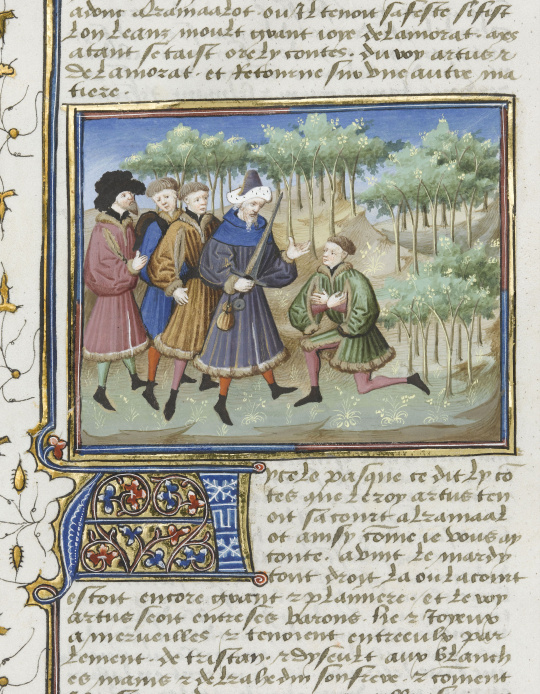 adonc a kramaalot. ou il tenoit sa feste si fist
lon leans moult grant ioye de lamorat. a ps
atant se taist ore ly contes. du roy artus ⁊
de lamorat. et retourne sur vne autre ma
tiere.
Aycele pasque ce dit ly cō
tes que le roy artus ten
oit sa court a kramaal
ot ainsy cōme ie vous ay
conte. aduint le mardy
tout droit la ou la court
estoit encore grant ⁊ planniere. et le roy
artus seoit entre ses barons. lie ⁊ ioyeux
a merueilles ⁊ tenoient entreeulx par
lement. de tristan. ⁊ dyseult aux blanch
es mains ⁊ de kahedin son frere. ⁊ coment